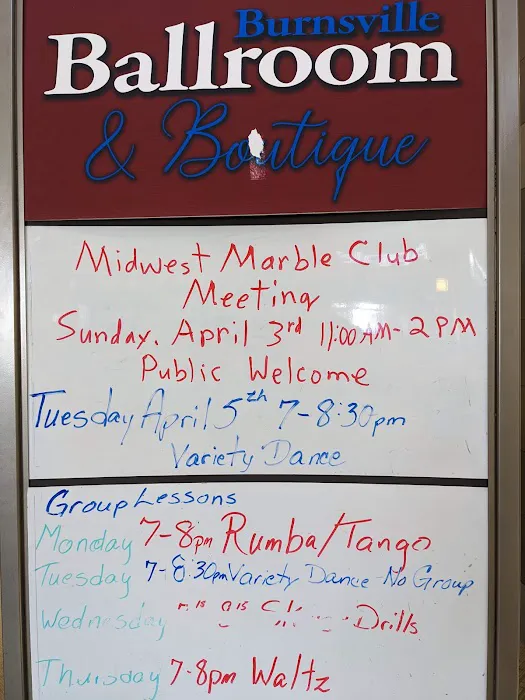 Burnsville
Ballroom
& Boutique
Midwest Marble Club
Meeting
Sunday, April 3rd 11:00 AM - 2 PM
Public Welcome
Tuesday April 5th 7-8:30pm
Variety Dance
Group Lessons
Monday 7-8pm Rumba/Tango
Tuesday 7-8:30pm Variety Dance - No Group
Wednesday Drills
Thursday 7-8pm Waltz